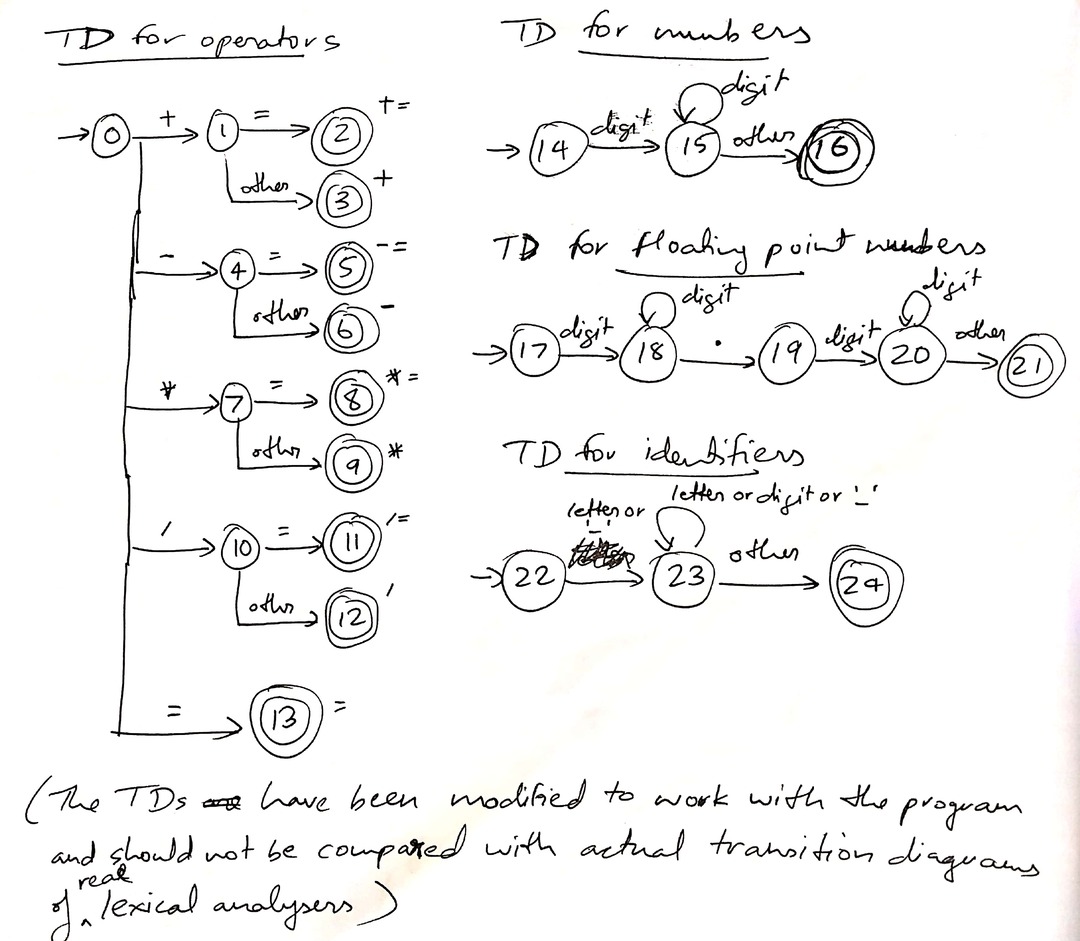 TD for operators
0 + 1 = 2 +=
other 3 +
- 4 = 5 -=
other 6 -
* 7 = 8 *=
other 9 *
/ 10 = 11 /=
other 12 /
= 13 =
TD for numbers
digit
14 digit 15 other 16
TD for floating point numbers
digit digit
17 digit 18 . 19 digit 20 other 21
TD for identifiers
letter or digit or '_'
letter or
'_'
22 23 other 24
(The TDs have been modified to work with the program
and should not be compared with actual transition diagrams
of real lexical analysers)